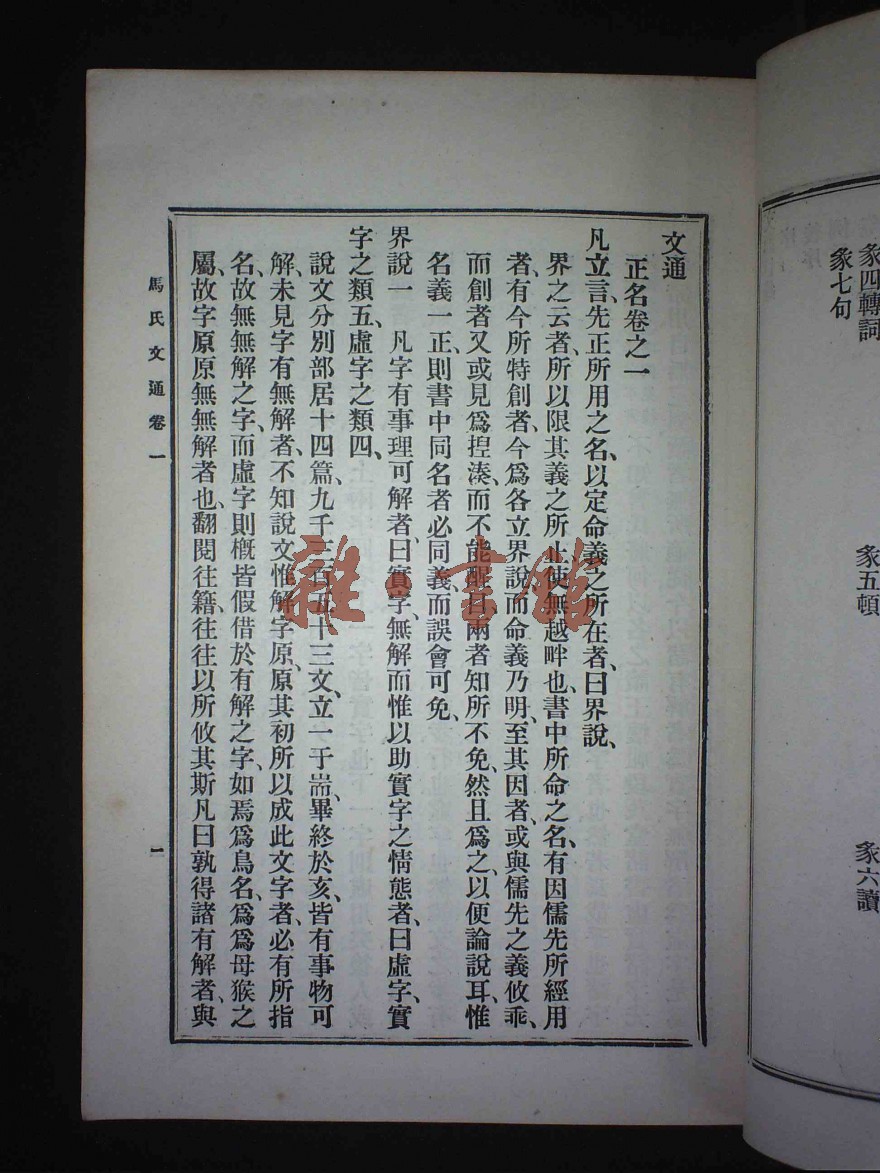 彖四轉詞
彖七句
彖五頓
彖六讀
文通
正名卷之一
凡立言、先正所用之名、以定命義之所在者、曰界說、
界之云者、所以限其義之所止、使無越畔也、書中所命之名、有因儒先所經用
者、有今所特創者、今爲各立界說、而命義乃明、至其因者、或與儒先之義攸乖、
而創者又或見爲捏湊、而不能醒目、兩者知所不免、然且爲之、以便論說耳、惟
名義一正、則書中同名者必同義、而誤會可免、
界說一 凡字有事理可解者、曰實字、無解而惟以助實字之情態者、曰虛字、實
字之類五、虛字之類四、
說文分別部居十四篇、九千三百五十三文、立一于耑、畢終於亥、皆有事物可
解、未見字有無解者、不知說文惟解字原、原其初所以成此文字者、必有所指
名、故無無解之字、而虛字則槪皆假借於有解之字、如焉爲鳥名、爲爲母猴之
屬、故字原原無無解者也、翻閱往籍、往往以所攸其斯凡曰孰得諸有解者、與
馬氏文通卷一
二
雜·書館